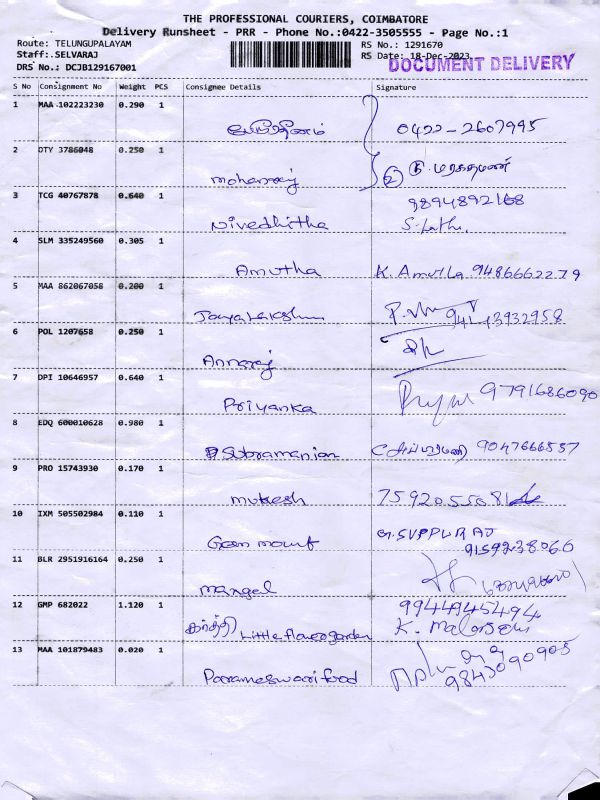 THE PROFESSIONAL COURIERS, COIMBATORE
Delivery Runsheet - PRR - Phone No.:0422-3505555 - Page No.:1
Route: TELUNGUPALAYAM RS No.: 1291670
Staff:.SELVARAJ RS Date: 18-Dec-2023
DOCUMENT DELIVERY
DRS No.: DCJB129167001
S No Consignment No Weight PCS Consignee Details Signature
1 MAA 102223230 0.290 1 0422-2607995
2 DTY 3786048 0.250 1 mohanraj
3 TCG 40767878 0.640 1 Nivedhitha 9894892168
4 SLM 335249560 0.305 1 Amutha K. Amutha 9486662279
5 MAA 862067058 0.200 1
6 POL 1207658 0.250 1 Annaraj
7 DPI 10646957 0.640 1 Priyanka 9791686090
8 EDQ 600010628 0.980 1 Subramanian 9047666557
9 PRO 15743930 0.170 1 mukesh
10 IXM 505502984 0.110 1 9159238066
11 BLR 2951916164 0.250 1 mangal
12 GMP 682022 1.120 1 கார்த்தி Little flower garden
13 MAA 101879483 0.020 1 Parameswari food